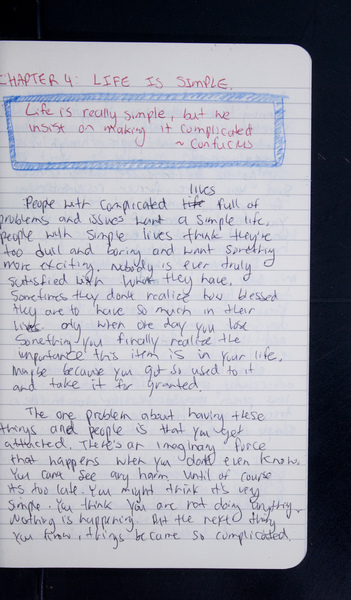 CHAPTER 4: LIFE IS SIMPLE.
Life is really simple, but we
insist on making it complicated
~ Confucius
lives
People with complicated life full of
problems and issues want a simple life,
people with simple lives think they're
too dull and boring and want something
more exciting. Nobody is ever truly
satisfied with what they have.
Sometimes they don't realize how blessed
they are to have so much in their
lives. only when one day you lose
something you finally realize the
importance this item is in your life.
Maybe because you got so used to it
and take it for granted.
The one problem about having these
things and people is that you get
attached. There's an imaginary force
that happens when you don't even know.
You can't see any harm until of course
it's too late. You might think it's very
simple. You think you are not doing anything.
Nothing is happening. But the next thing
you know, things became so complicated.